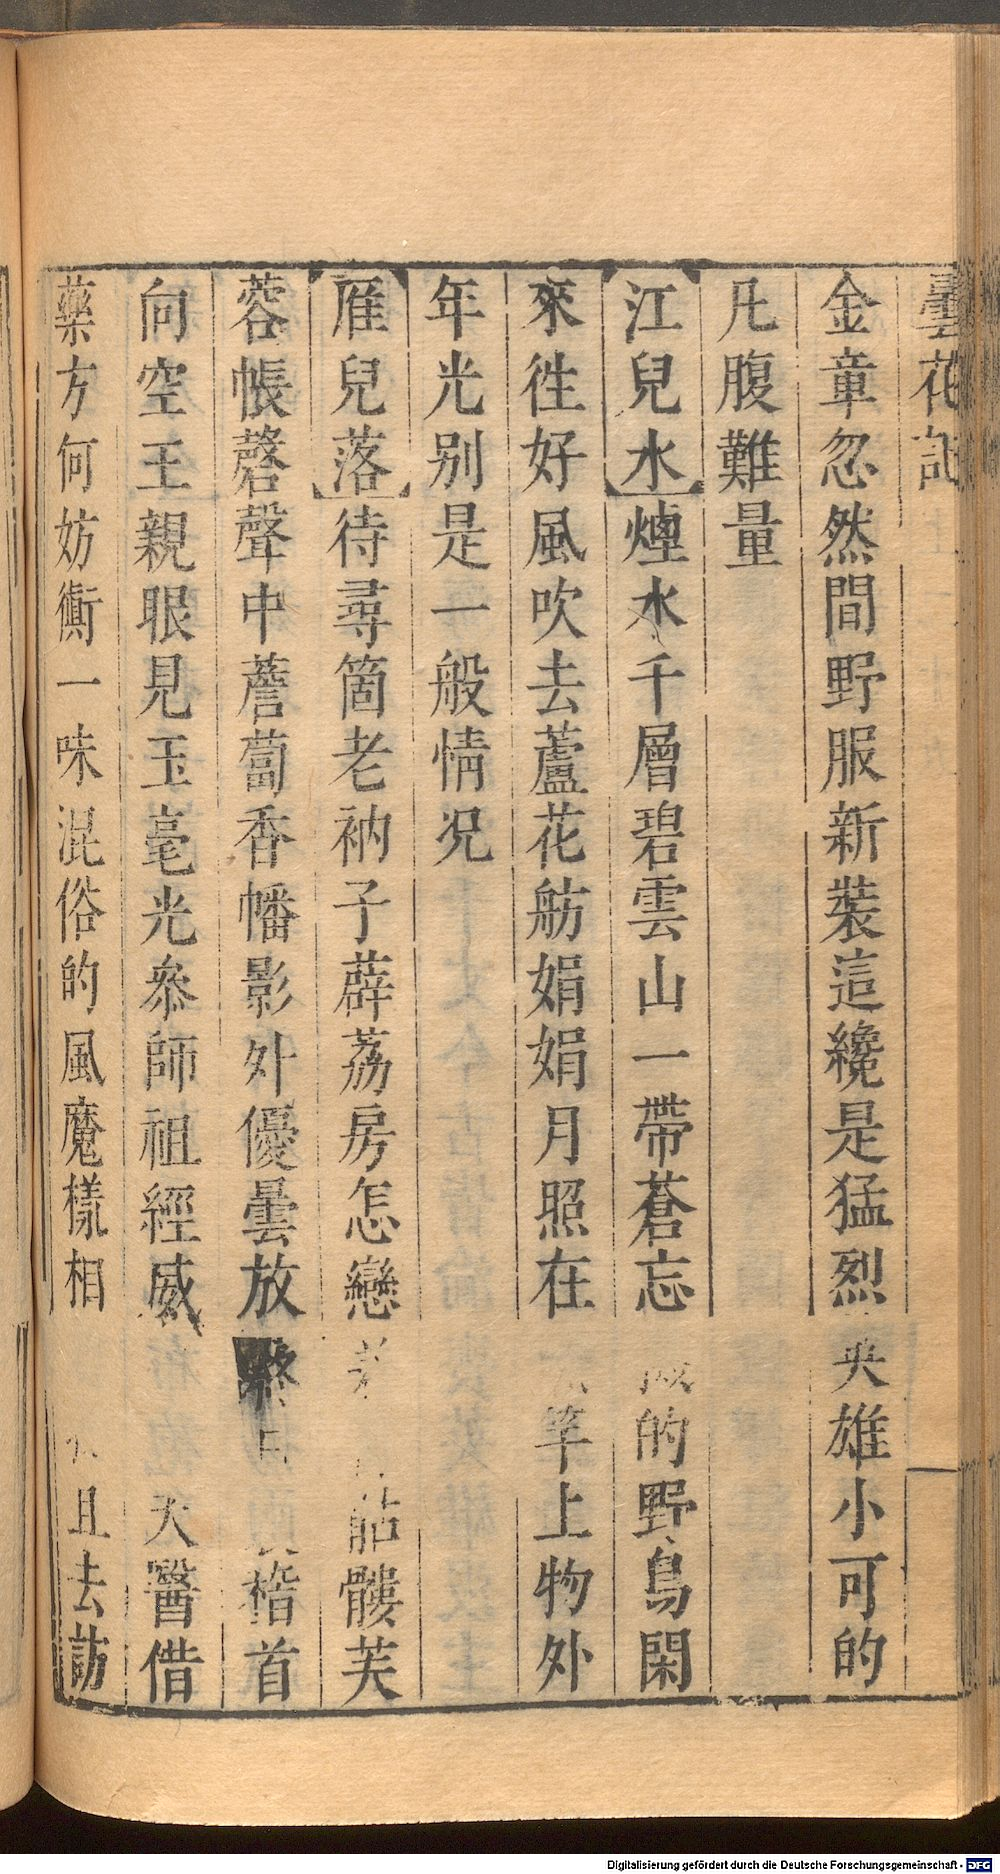 曇花記
金章忽然間野服新裝這纔是猛烈英雄小可的
凡腹難量
江兒水煙水千層碧雲山一帶蒼忘的野鳥閑
來徃好風吹去蘆花舫娟娟月照在上物外
年光别是一般情况
雁兒落待尋箇老衲子薜荔房怎戀骷髏芙
蓉帳磬聲中薝蔔香幡影外優曇放稽首
向空王親眼見玉毫光叅師祖經威大醫借
藥方何妨衠一味混俗的風魔樣相且去訪
Digitalisierung gefördert durch die Deutsche Forschungsgemeinschaft - DFG